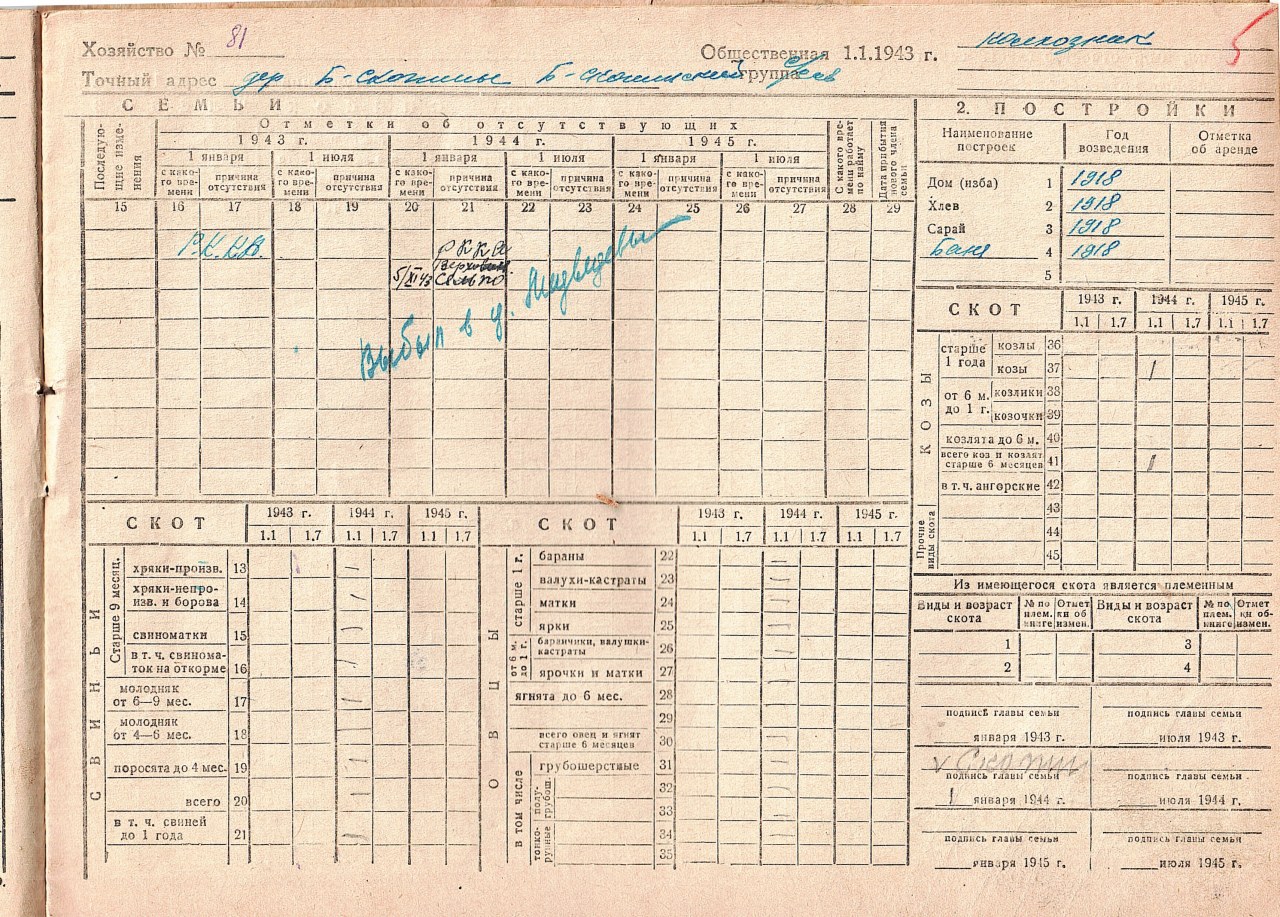 Хозяйство № 81
Общественная группа 1.1.1943 г. колхозник
Точный адрес дер Б-Скопины Б-Скопинский с/сов
5
СЕМЬИ
Последующие изменения
Отметки об отсутствующих
1943 г. 1944 г. 1945 г.
1 января 1 июля 1 января 1 июля 1 января 1 июля
с какого времени причина отсутствия с какого времени причина отсутствия с какого времени причина отсутствия с какого времени причина отсутствия с какого времени причина отсутствия с какого времени причина отсутствия
С какого времени работает по найму
Дата прибытия нового члена семьи
15 16 17 18 19 20 21 22 23 24 25 26 27 28 29
Р.К.К.А. РККА
5/XI 43 Сельпо
Выбыл в д.
2. ПОСТРОЙКИ
Наименование построек Год возведения Отметка об аренде
Дом (изба) 1 1918
Хлев 2 1918
Сарай 3 1918
Баня 4 1918
5
СКОТ 1943 г. 1944 г. 1945 г.
1.1 1.7 1.1 1.7 1.1 1.7
КОЗЫ
старше 1 года козлы 36
козы 37 1
от 6 м. до 1 г. козлики 38
козочки 39
козлята до 6 м. 40
всего коз и козлят старше 6 месяцев 41 1
в т.ч. ангорские 42
Прочие виды скота
43
44
45
СКОТ 1943 г. 1944 г. 1945 г.
1.1 1.7 1.1 1.7 1.1 1.7
СВИНЬИ
Старше 9 месяц.
хряки-произв. 13 —
хряки-непроизв. и борова 14
свиноматки 15 —
в т. ч. свиноматок на откорме 16 —
молодняк от 6—9 мес. 17
молодняк от 4—6 мес. 18
поросята до 4 мес. 19 —
всего 20 —
в т. ч. свиней до 1 года 21 —
СКОТ 1943 г. 1944 г. 1945 г.
1.1 1.7 1.1 1.7 1.1 1.7
ОВЦЫ
старше 1 г.
бараны 22 —
валухи-кастраты 23 —
матки 24 —
ярки 25 —
от 6 м. до 1 г.
баранчики, валушки-кастраты 26 —
ярочки и матки 27 —
ягнята до 6 мес. 28 —
29
всего овец и ягнят старше 6 месяцев 30 —
в том числе
грубошерстные 31 —
полугрубош. 32 —
33 —
тонкорунные 34 —
35
Из имеющегося скота является племенным
Виды и возраст скота № по плем. книге Отметки об измен. Виды и возраст скота № по плем. книге Отметки об измен.
1 3
2 4
подпись главы семьи подпись главы семьи
января 1943 г. июля 1943 г.
v Скопин
подпись главы семьи подпись главы семьи
1 января 1944 г. июля 1944 г.
подпись главы семьи подпись главы семьи
января 1945 г. июля 1945 г.